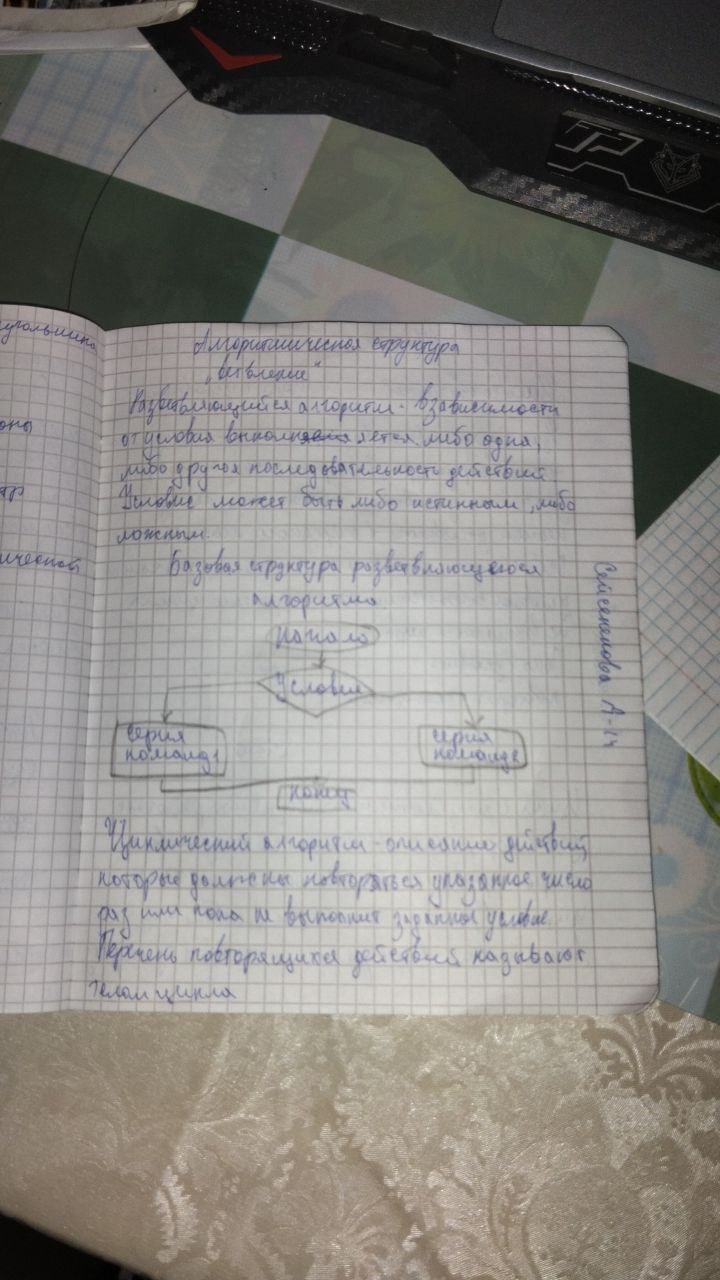 угольника
оны
ической
Алгоритмическая структура
„ветвление"
Разветвляющийся алгоритм - в зависимости
от условия выполняется либо одна,
либо другая последовательность действий
Условие может быть либо истинным, либо
ложным.
Базовая структура разветвляющегося
алгоритма
начало
Условие
серия
команд1
серия
команд2
конец
Циклический алгоритм - описание действий,
которые должны повторяться указанное число
раз или пока не выполнит заданное условие.
Перечень повторящихся действий называют
телом цикла
А-14